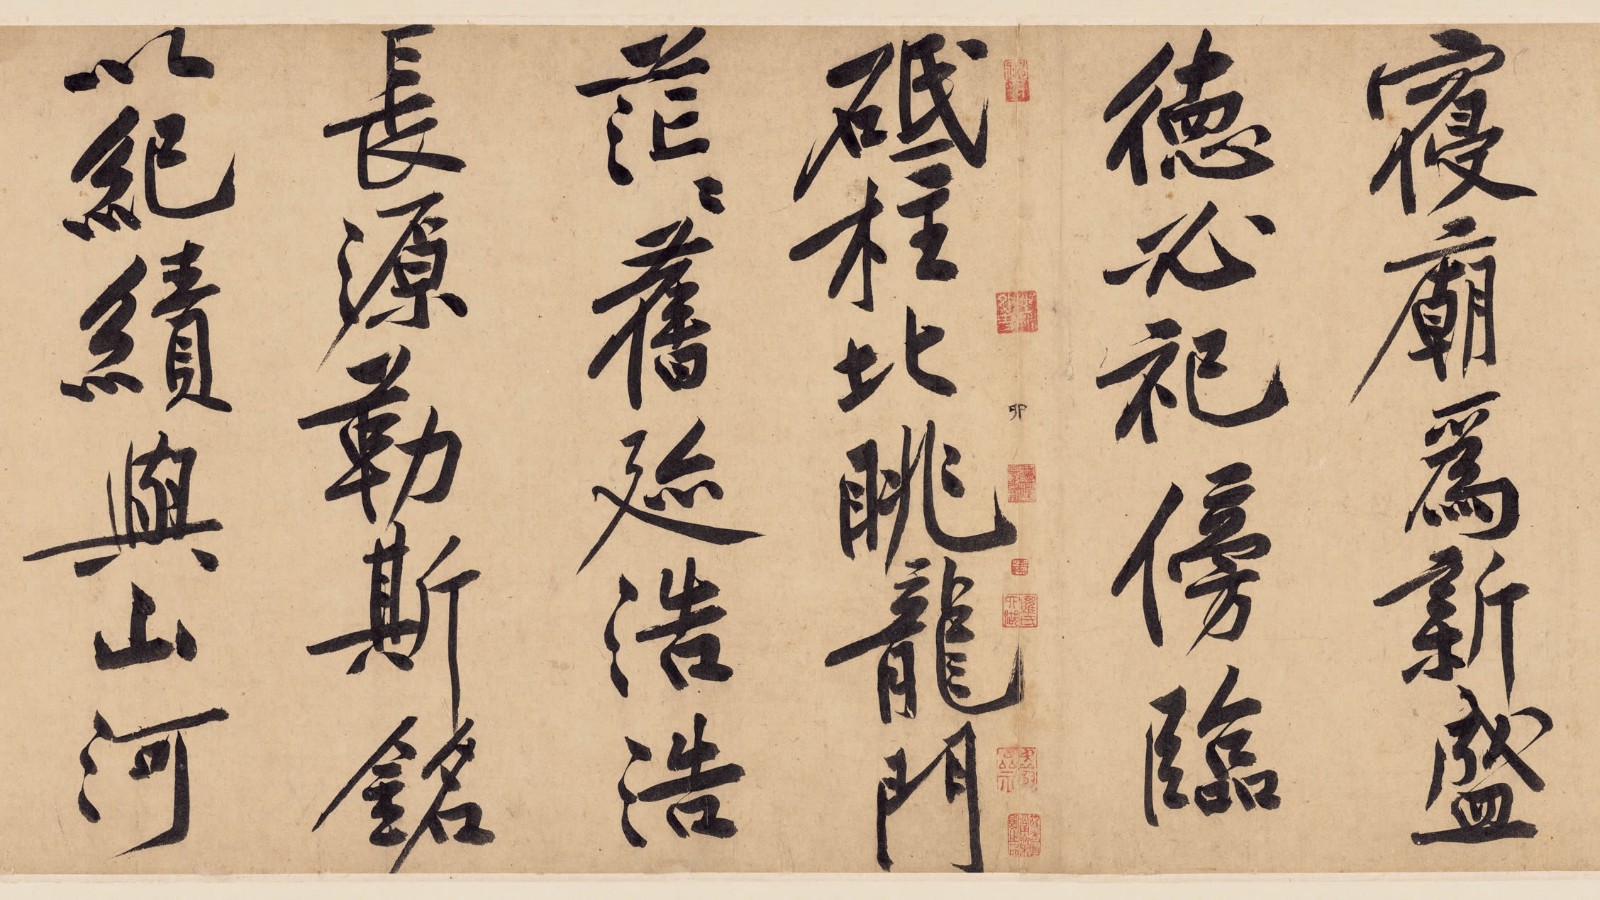 寢廟爲新盛
德必祀傍臨
砥柱北眺龍門
茫〻舊迹浩浩
長源勒斯銘
以紀績與山河